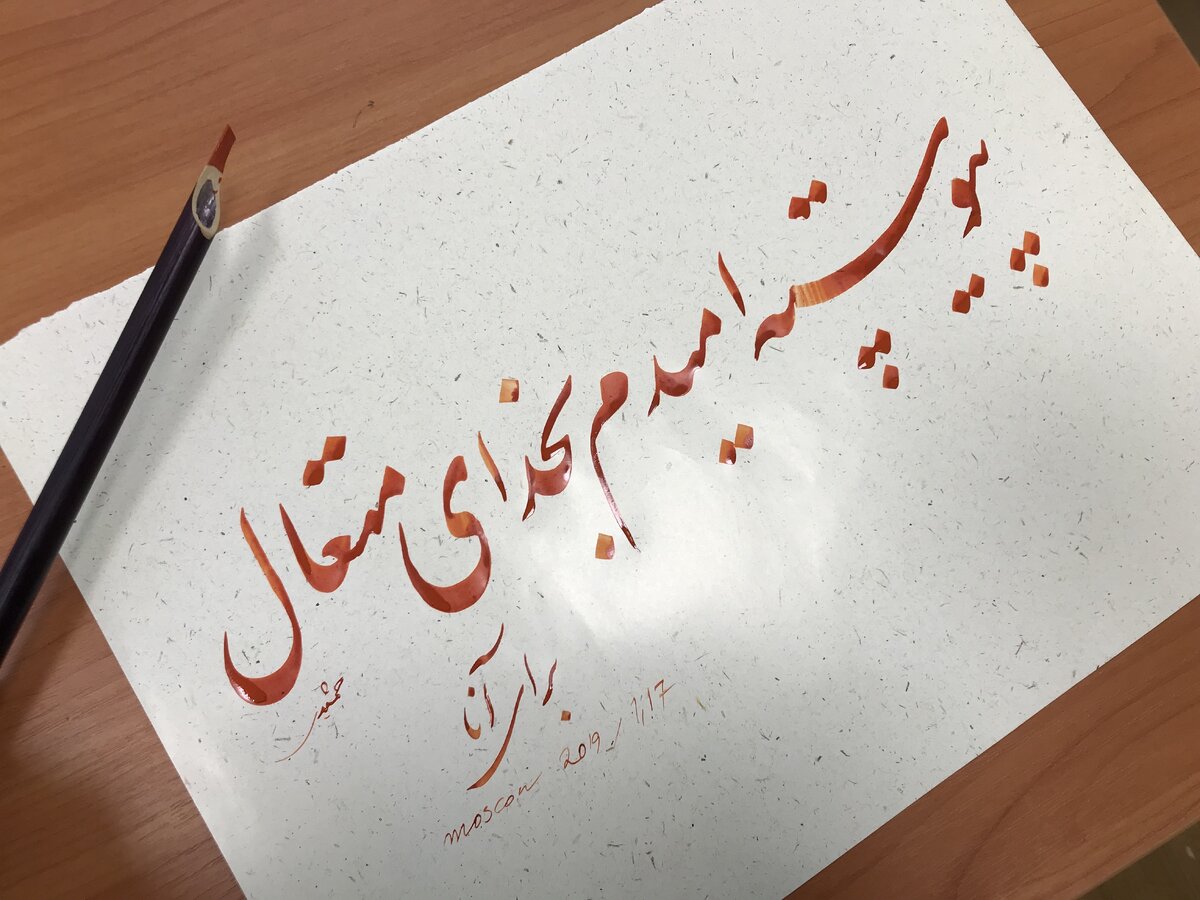 پیوسته امیدم بخدای متعال
برای آنا
جمشید
moscow 2019/1/17